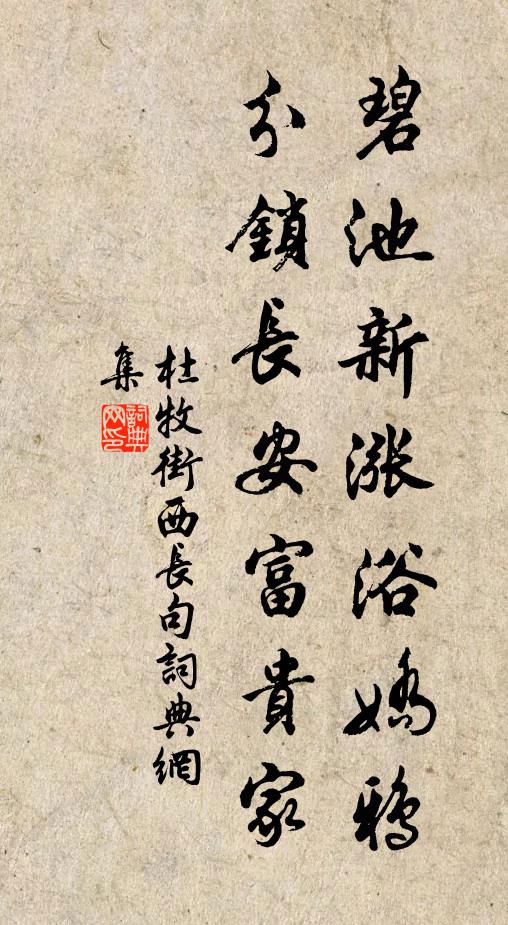 碧池新漲浴嬌鴉
分鎖長安富貴家
杜牧街西長句詞典網
集
詞典
网印